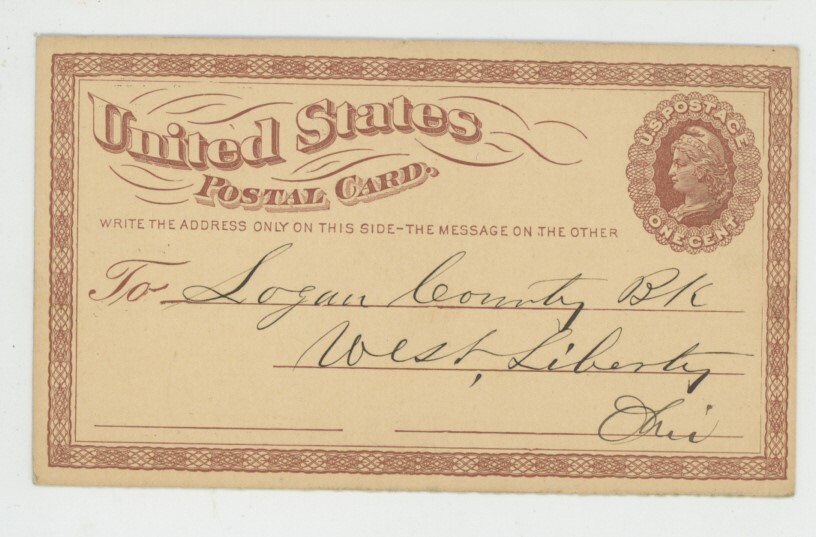 United States
POSTAL CARD.
U.S. POSTAGE
ONE CENT
WRITE THE ADDRESS ONLY ON THIS SIDE-THE MESSAGE ON THE OTHER
To Logan County BK
West Liberty
Ohio